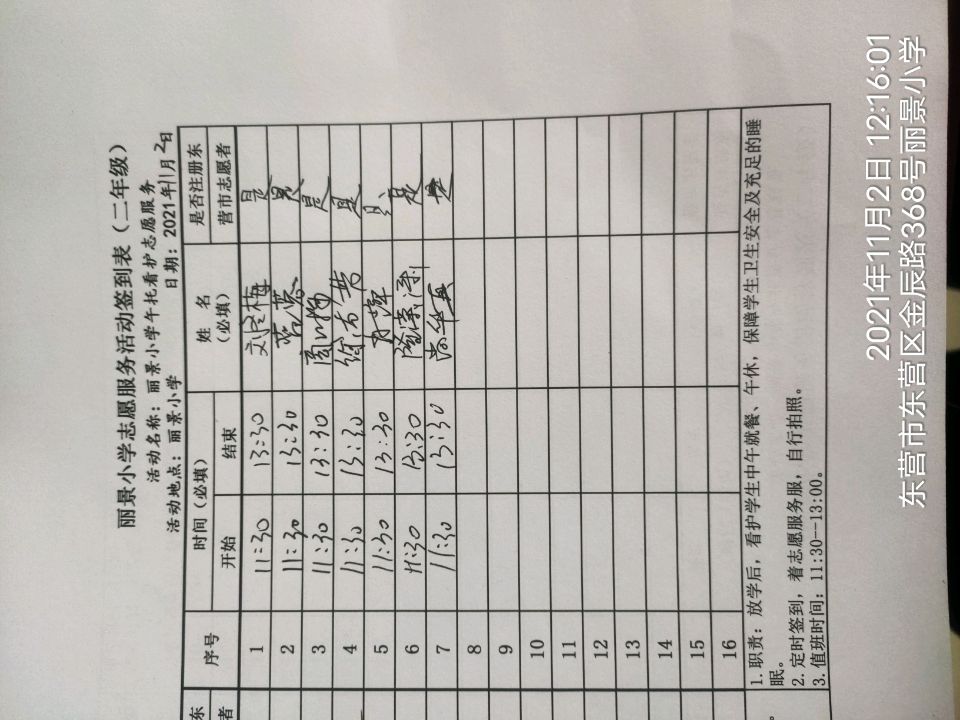 丽景小学志愿服务活动签到表（二年级）
活动名称：丽景小学午托看护志愿服务
活动地点：丽景小学 日期：2021年11月2日
序号 时间（必填） 姓 名（必填） 是否注册东营市志愿者
开始 结束
1 11:30 13:30 是
2 11:30 13:30 是
3 11:30 13:30 是
4 11:30 13:30 是
5 11:30 13:30 是
6 11:30 13:30 是
7 11:30 13:30 是
8
9
10
11
12
13
14
15
16
1.职责：放学后，看护学生中午就餐、午休，保障学生卫生安全及充足的睡
眠。
2.定时签到，着志愿服务服，自行拍照。
3.值班时间：11:30--13:00。
东
者
2021年11月2日 12:16:01
东营市东营区金辰路368号丽景小学